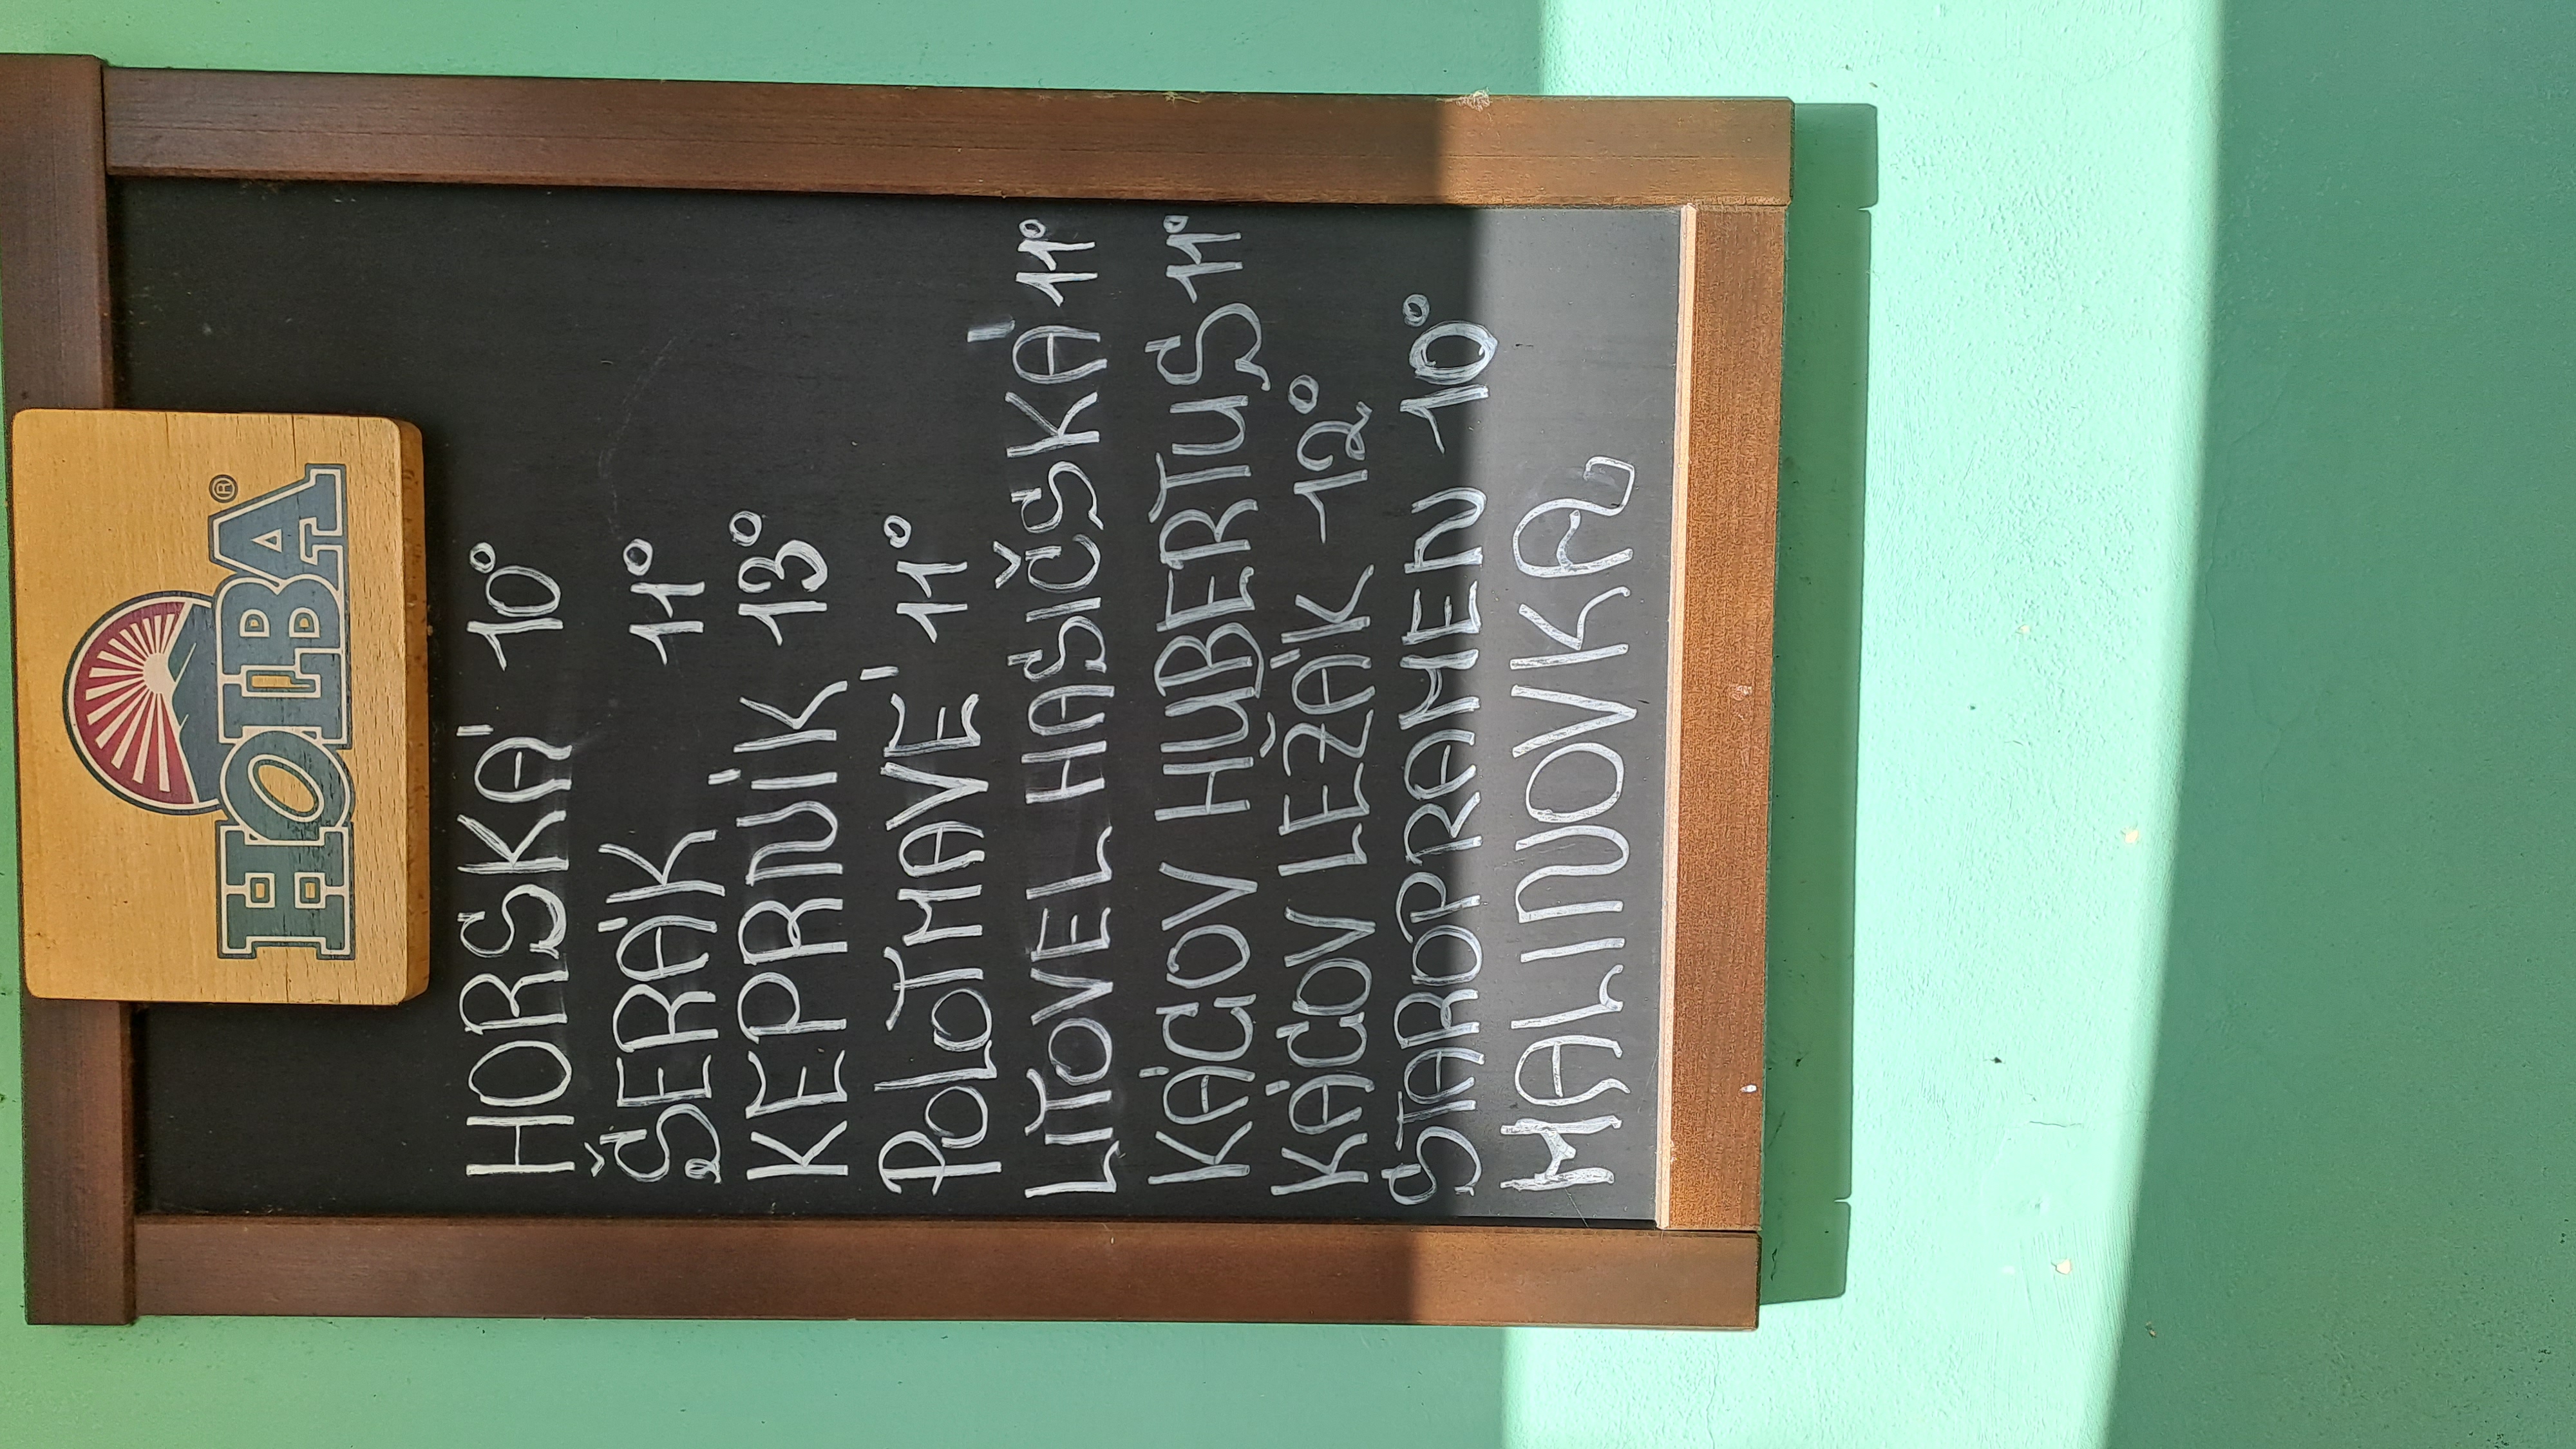 HOLBA®
HORSKÁ 10°
ŠERÁK 11°
KEPRNÍK 13°
POLOTMAVÉ 11°
LITOVEL HASIČSKÁ 11°
KÁCOV HUBERTUS 11°
KÁCOV LEŽÁK 12°
STAROPRAMEN 10°
MALINOVKA